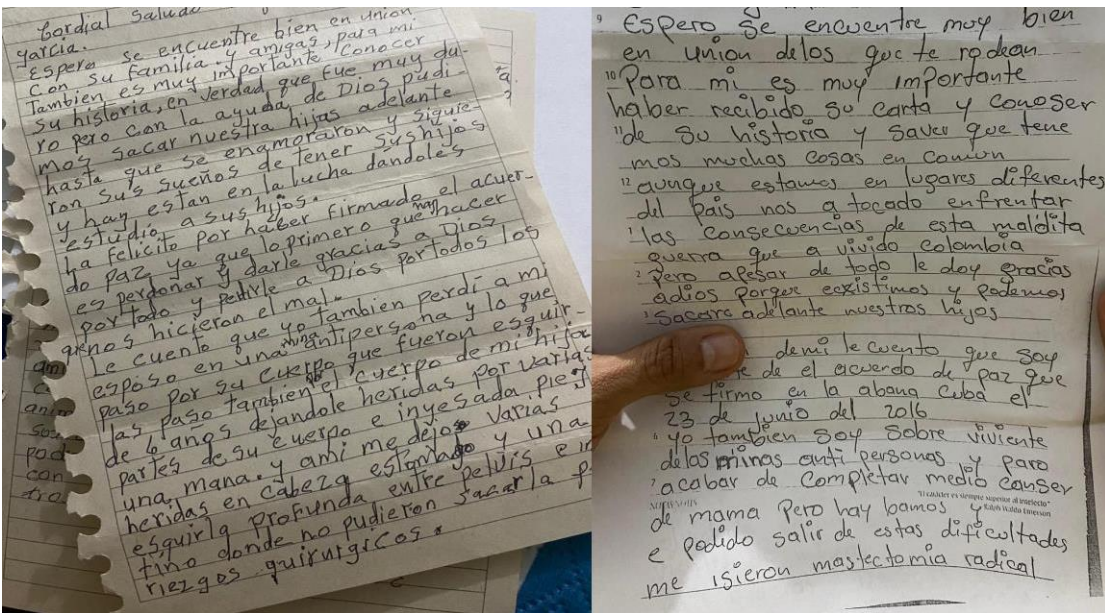 Cordial Saludo
garcia.
Espero se encuentre bien en union
Con su familia y amigas, para mi
Tambien es muy importante Conocer
Su historia, en verdad, que fue muy du-
ro pero con la ayuda de Dios pudi-
mos sacar nuestra hijas adelante
hasta que se enamoraron y siguie-
ron sus sueños de tener sus hijos
y hay estan en la lucha dandoles
estudio a sus hijos.
La felicito por haber firmado el acuer-
do paz ya que lo primero que hay hacer
es perdonar y darle gracias a Dios
por todo y pedirle a Dios por todos los
qienos hicieron el mal.
Le cuento que yo tambien perdí a mi
esposo en una mina antipersona y lo que
paso por su cuerpo que fueron esquir-
las paso tambien el cuerpo de mi hija
de 6 años dejandole heridas por varias
partes de su cuerpo e inyesada pie y
una mana. y ami me dejo varias
heridas en cabeza estomago y una
esquirla profunda entre pelvis e in
tino donde no pudieron sacarla p
riezgos quirurgicos.
9 Espero se encuentre moy bien
en union delos que te rodean
10 Para mi es muy importante
haber recibido su carta y conoser
11 de su historia y saver que tene
mos muchas cosas en comun
12 aunque estamos en lugares diferentes
del pais nos a tocado enfrentar
1 las consecuencias de esta maldita
guerra que a vivido colombia
2 Pero apesar de todo le doy gracias
adios porque ecxistimos y podemos
sacara adelante nuestros hijos
demi le cuento que soy
te de el acuerdo de paz que
se firmo en la abana cuba el
23 de junio del 2016
6 yo tambien soy sobre viviente
delas minas anti personas y para
7 acabar de completar medio canser
"El carácter es siempre superior al intelecto"
Ralph Waldo Emerson
de mama Pero hay bamos y
e podido salir de estas dificultades
me isieron mastectomia radical